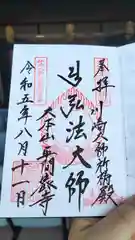 奉拝 川崎大師祈祷殿
弘法大師
大本山 平間寺
令和五年八月十一日